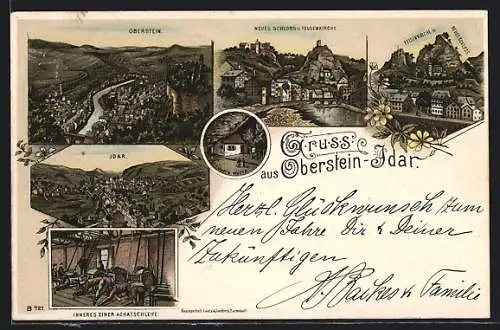 OBERSTEIN.
NEUES SCHLOSS U. FELSENKIRCHE.
FELSENKIRCHE U.
IDAR.
Gruss
aus Oberstein-Idar.
Herzl. Glückwunsch zum
neuen Jahre Dir & Deiner
Zukünftigen
& Familie
B 721.
INNERES EINER ACHATSCHLEIFE.